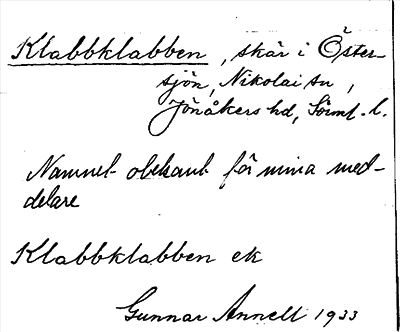 Klabbklabben, skär i Öster-
sjön, Nikolai sn,
Jönåkers hd, Sörml. l.
Namnet obekant för mina med-
delare
Klabbklabben ek
Gunnar Annell 1933